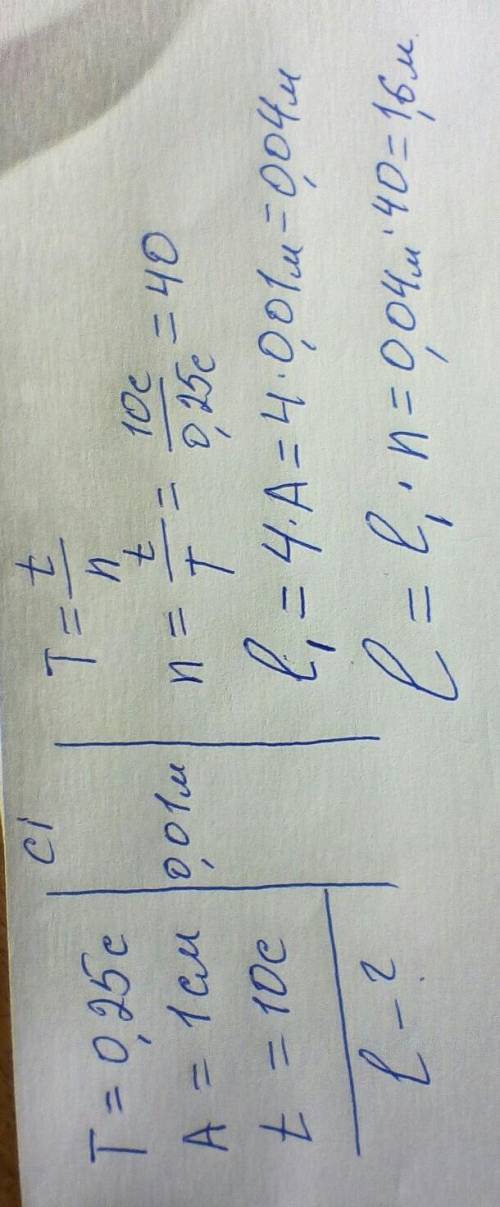 T = 0,25с
A = 1см
t = 10с
l - ?
СІ
0,01м
T = t/n
n = t/T = 10с/0,25с = 40
l₁ = 4·A = 4·0,01м = 0,04м
l = l₁·n = 0,04м·40 = 1,6м